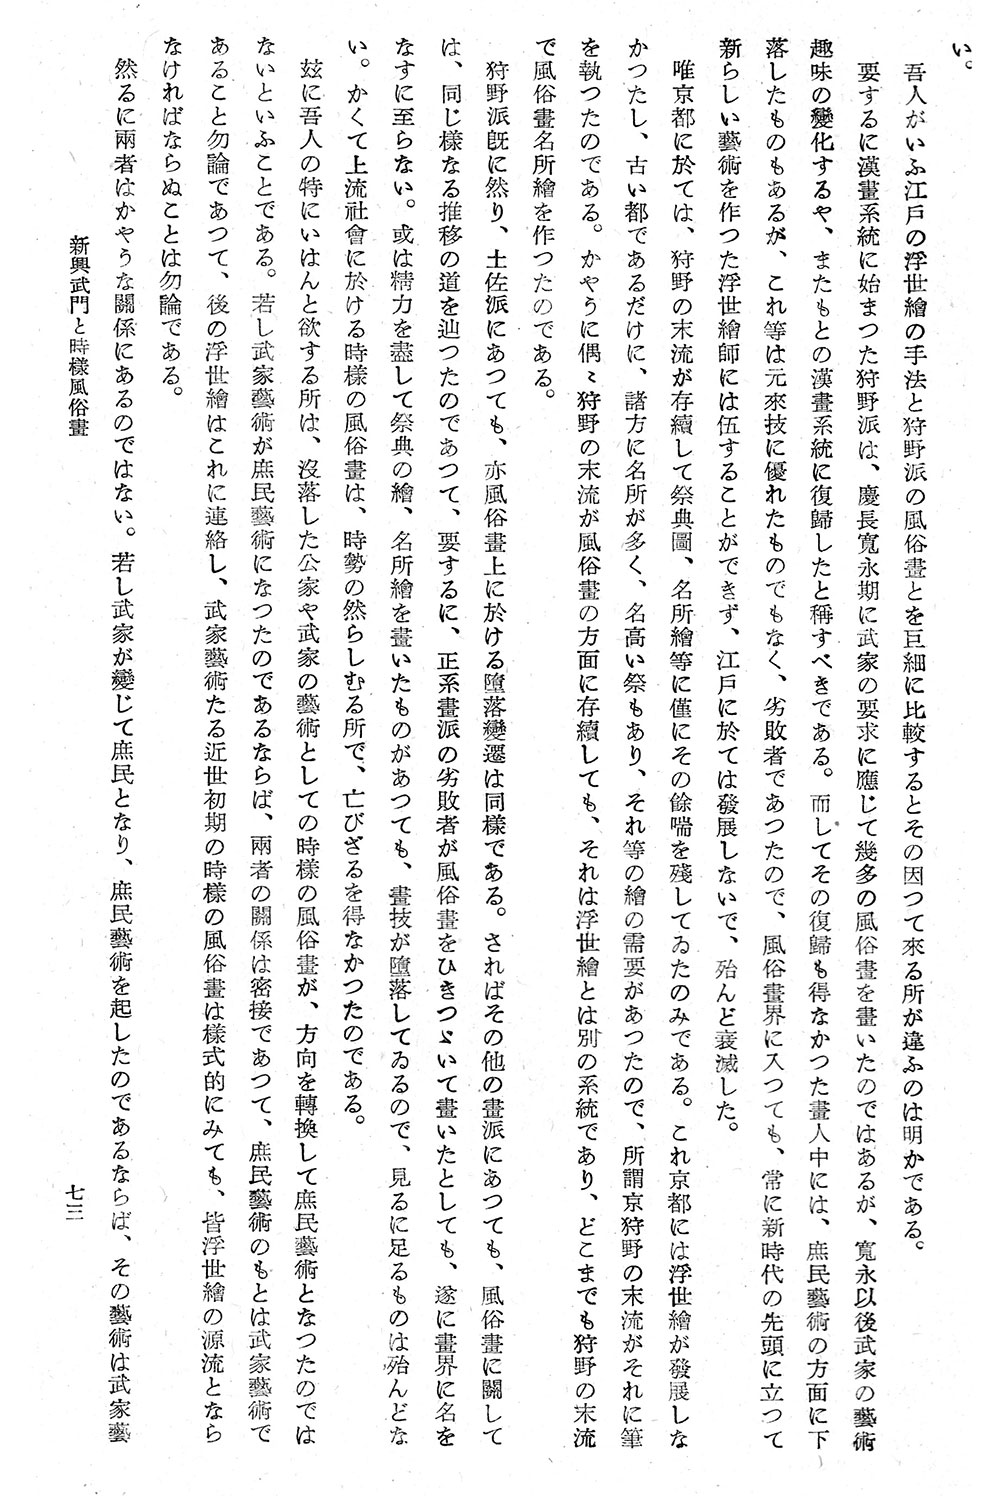 い。
吾人がいふ江戸の浮世繪の手法と狩野派の風俗畫とを巨細に比較するとその因つて來る所が違ふのは明かである。
要するに漢畫系統に始まつた狩野派は、慶長寛永期に武家の要求に應じて幾多の風俗畫を畫いたのではあるが、寛永以後武家の藝術
趣味の變化するや、またもとの漢畫系統に復歸したと稱すべきである。而してその復歸も得なかつた畫人中には、庶民藝術の方面に下
落したものもあるが、これ等は元來技に優れたものでもなく、劣敗者であつたので、風俗畫界に入つても、常に新時代の先頭に立つて
新らしい藝術を作つた浮世繪師には伍することができず、江戸に於ては發展しないで、殆んど衰滅した。
唯京都に於ては、狩野の末流が存續して祭典圖、名所繪等に僅にその餘喘を殘してゐたのみである。これ京都には浮世繪が發展しな
かつたし、古い都であるだけに、諸方に名所が多く、名高い祭もあり、それ等の繪の需要があつたので、所謂京狩野の末流がそれに筆
を執つたのである。かやうに偶〻狩野の末流が風俗畫の方面に存續しても、それは浮世繪とは別の系統であり、どこまでも狩野の末流
で風俗畫名所繪を作つたのである。
狩野派既に然り、土佐派にあつても、亦風俗畫上に於ける墮落變遷は同様である。さればその他の畫派にあつても、風俗畫に關して
は、同じ様なる推移の道を辿つたのであつて、要するに、正系畫派の劣敗者が風俗畫をひきつゞいて畫いたとしても、遂に畫界に名を
なすに至らない。或は精力を盡して祭典の繪、名所繪を畫いたものがあつても、畫技が墮落してゐるので、見るに足るものは殆んどな
い。かくて上流社會に於ける時様の風俗畫は、時勢の然らしむる所で、亡びざるを得なかつたのである。
玆に吾人の特にいはんと欲する所は、沒落した公家や武家の藝術としての時様の風俗畫が、方向を轉換して庶民藝術となつたのでは
ないといふことである。若し武家藝術が庶民藝術になつたのであるならば、兩者の關係は密接であつて、庶民藝術のもとは武家藝術で
あること勿論であつて、後の浮世繪はこれに連絡し、武家藝術たる近世初期の時様の風俗畫は様式的にみても、皆浮世繪の源流となら
なければならぬことは勿論である。
然るに兩者はかやうな關係にあるのではない。若し武家が變じて庶民となり、庶民藝術を起したのであるならば、その藝術は武家藝
新興武門と時様風俗畫
七三